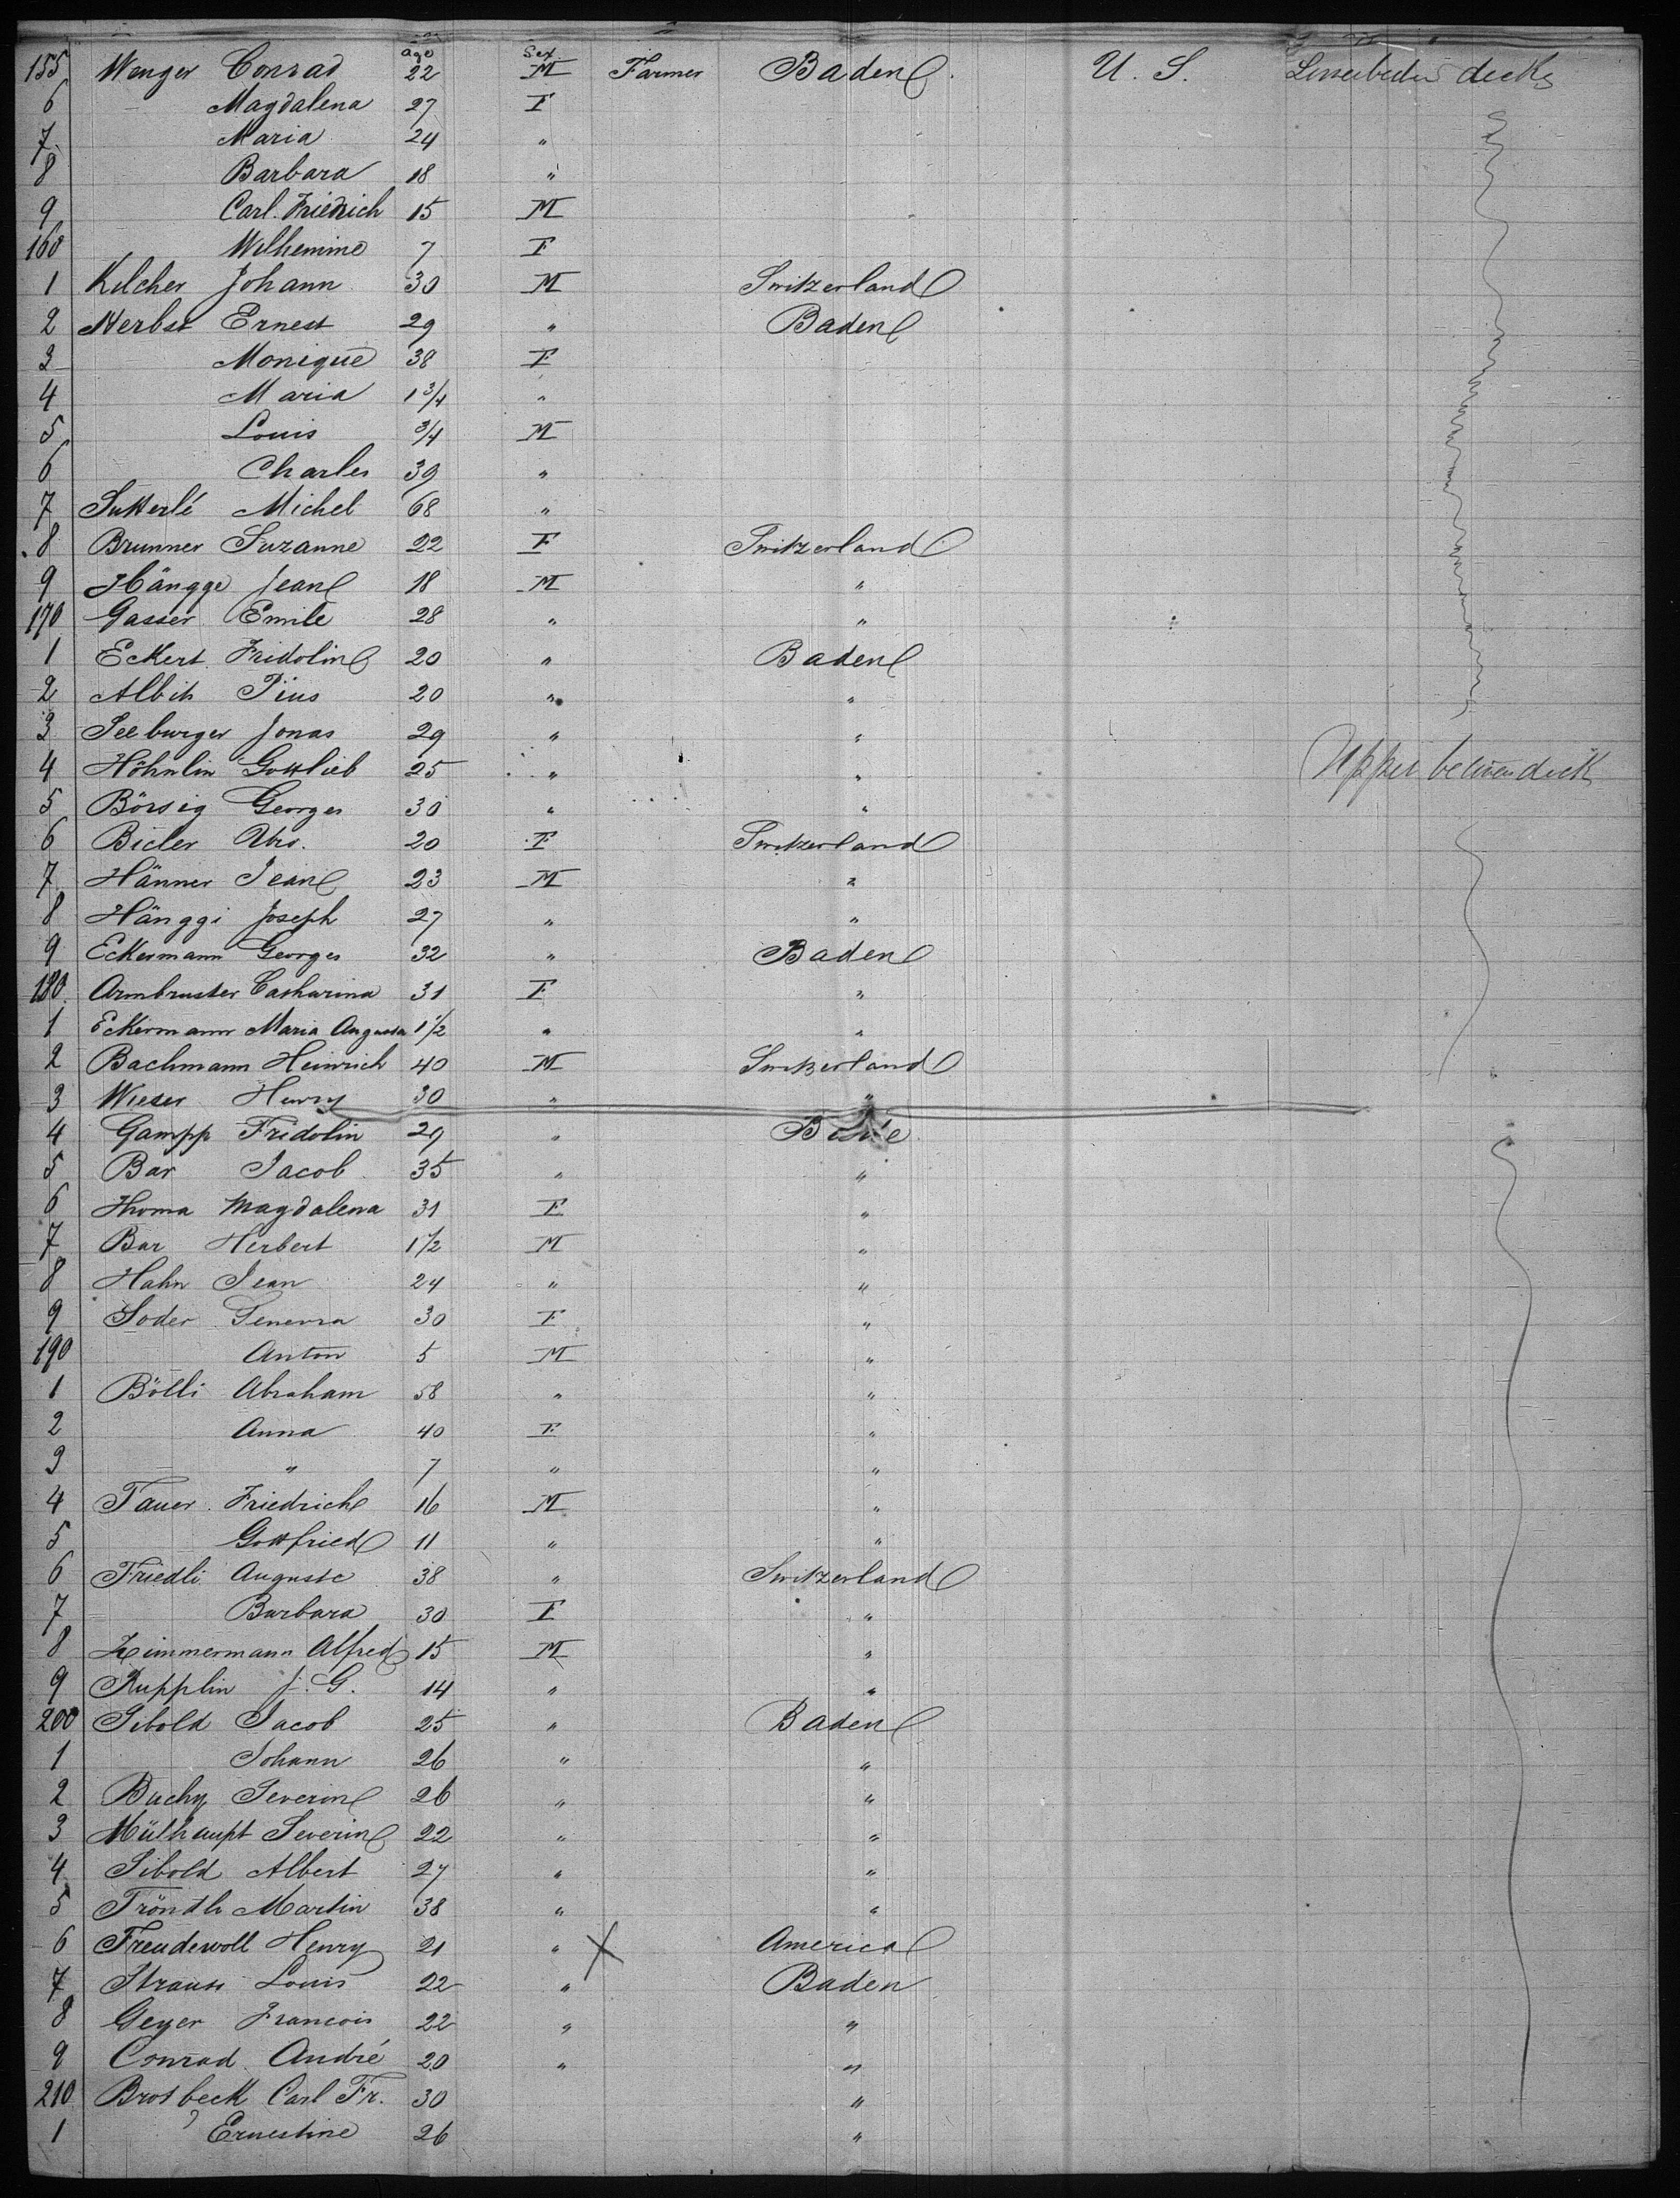 age Sex
155 Wenger Conrad 22 M Farmer Baden U. S. decks
6 Magdalena 27 F
7 Maria 24 "
8 Barbara 18 "
9 Carl. Friedrich 15 M
160 Wilhemine 7 F
1 Kilcher Johann 30 M Switzerland
2 Herbst Ernest 29 " Baden
3 Monique 38 F
4 Maria 1 3/4 "
5 Louis 3/4 M
6 Charles 39 "
7 Sutterlé Michel 68 "
8 Brunner Suzanne 22 F Switzerland
9 Hängge Jean 18 M "
170 Gasser Emile 28 " "
1 Eckert Fridolin 20 " Baden
2 Albih Pius 20 " "
3 Seeburger Jonas 29 " "
4 Höhnlin Gottlieb 25 " " Upper between deck
5 Börsig Georges 30 " "
6 Bieler 20 F Switzerland
7 Hänner Jean 23 M "
8 Hänggi Joseph 27 " "
9 Eckermann Georges 32 " Baden
180 Armbruster Catharina 31 F "
1 Eckermann Maria Augusta 1 1/2 " "
2 Bachmann Heinrich 40 M Switzerland
3 Wieser Henry 30 " "
4 Gampp Fridolin 29 "
5 Bär Jacob 35 " "
6 Thoma Magdalena 31 F "
7 Bar Herbert 1 1/2 M "
8 Hahn Jean 24 " "
9 Soder 30 F "
190 Anton 5 M "
1 Bölli Abraham 58 " "
2 Anna 40 F "
3 " 7 " "
4 Tauer Friedrich 16 M "
5 Gottfried 11 " "
6 Friedli Auguste 38 " Switzerland
7 Barbara 30 F "
8 Zimmermann Alfred 15 M "
9 Rupplin J. G. 14 " "
200 Sibold Jacob 25 " Baden
1 Johann 26 " "
2 Buchy Severin 26 " "
3 Mülhaupt Severin 22 " "
4 Sibold Albert 27 " "
5 Tröndle Martin 38 " "
6 Freudewoll Henry 21 " X America
7 Strauss Louis 22 " Baden
8 Geyer Francois 22 " "
9 Conrad André 20 " "
210 Brosbeck Carl Fr. 30 "
1 " Ernestine 26 "